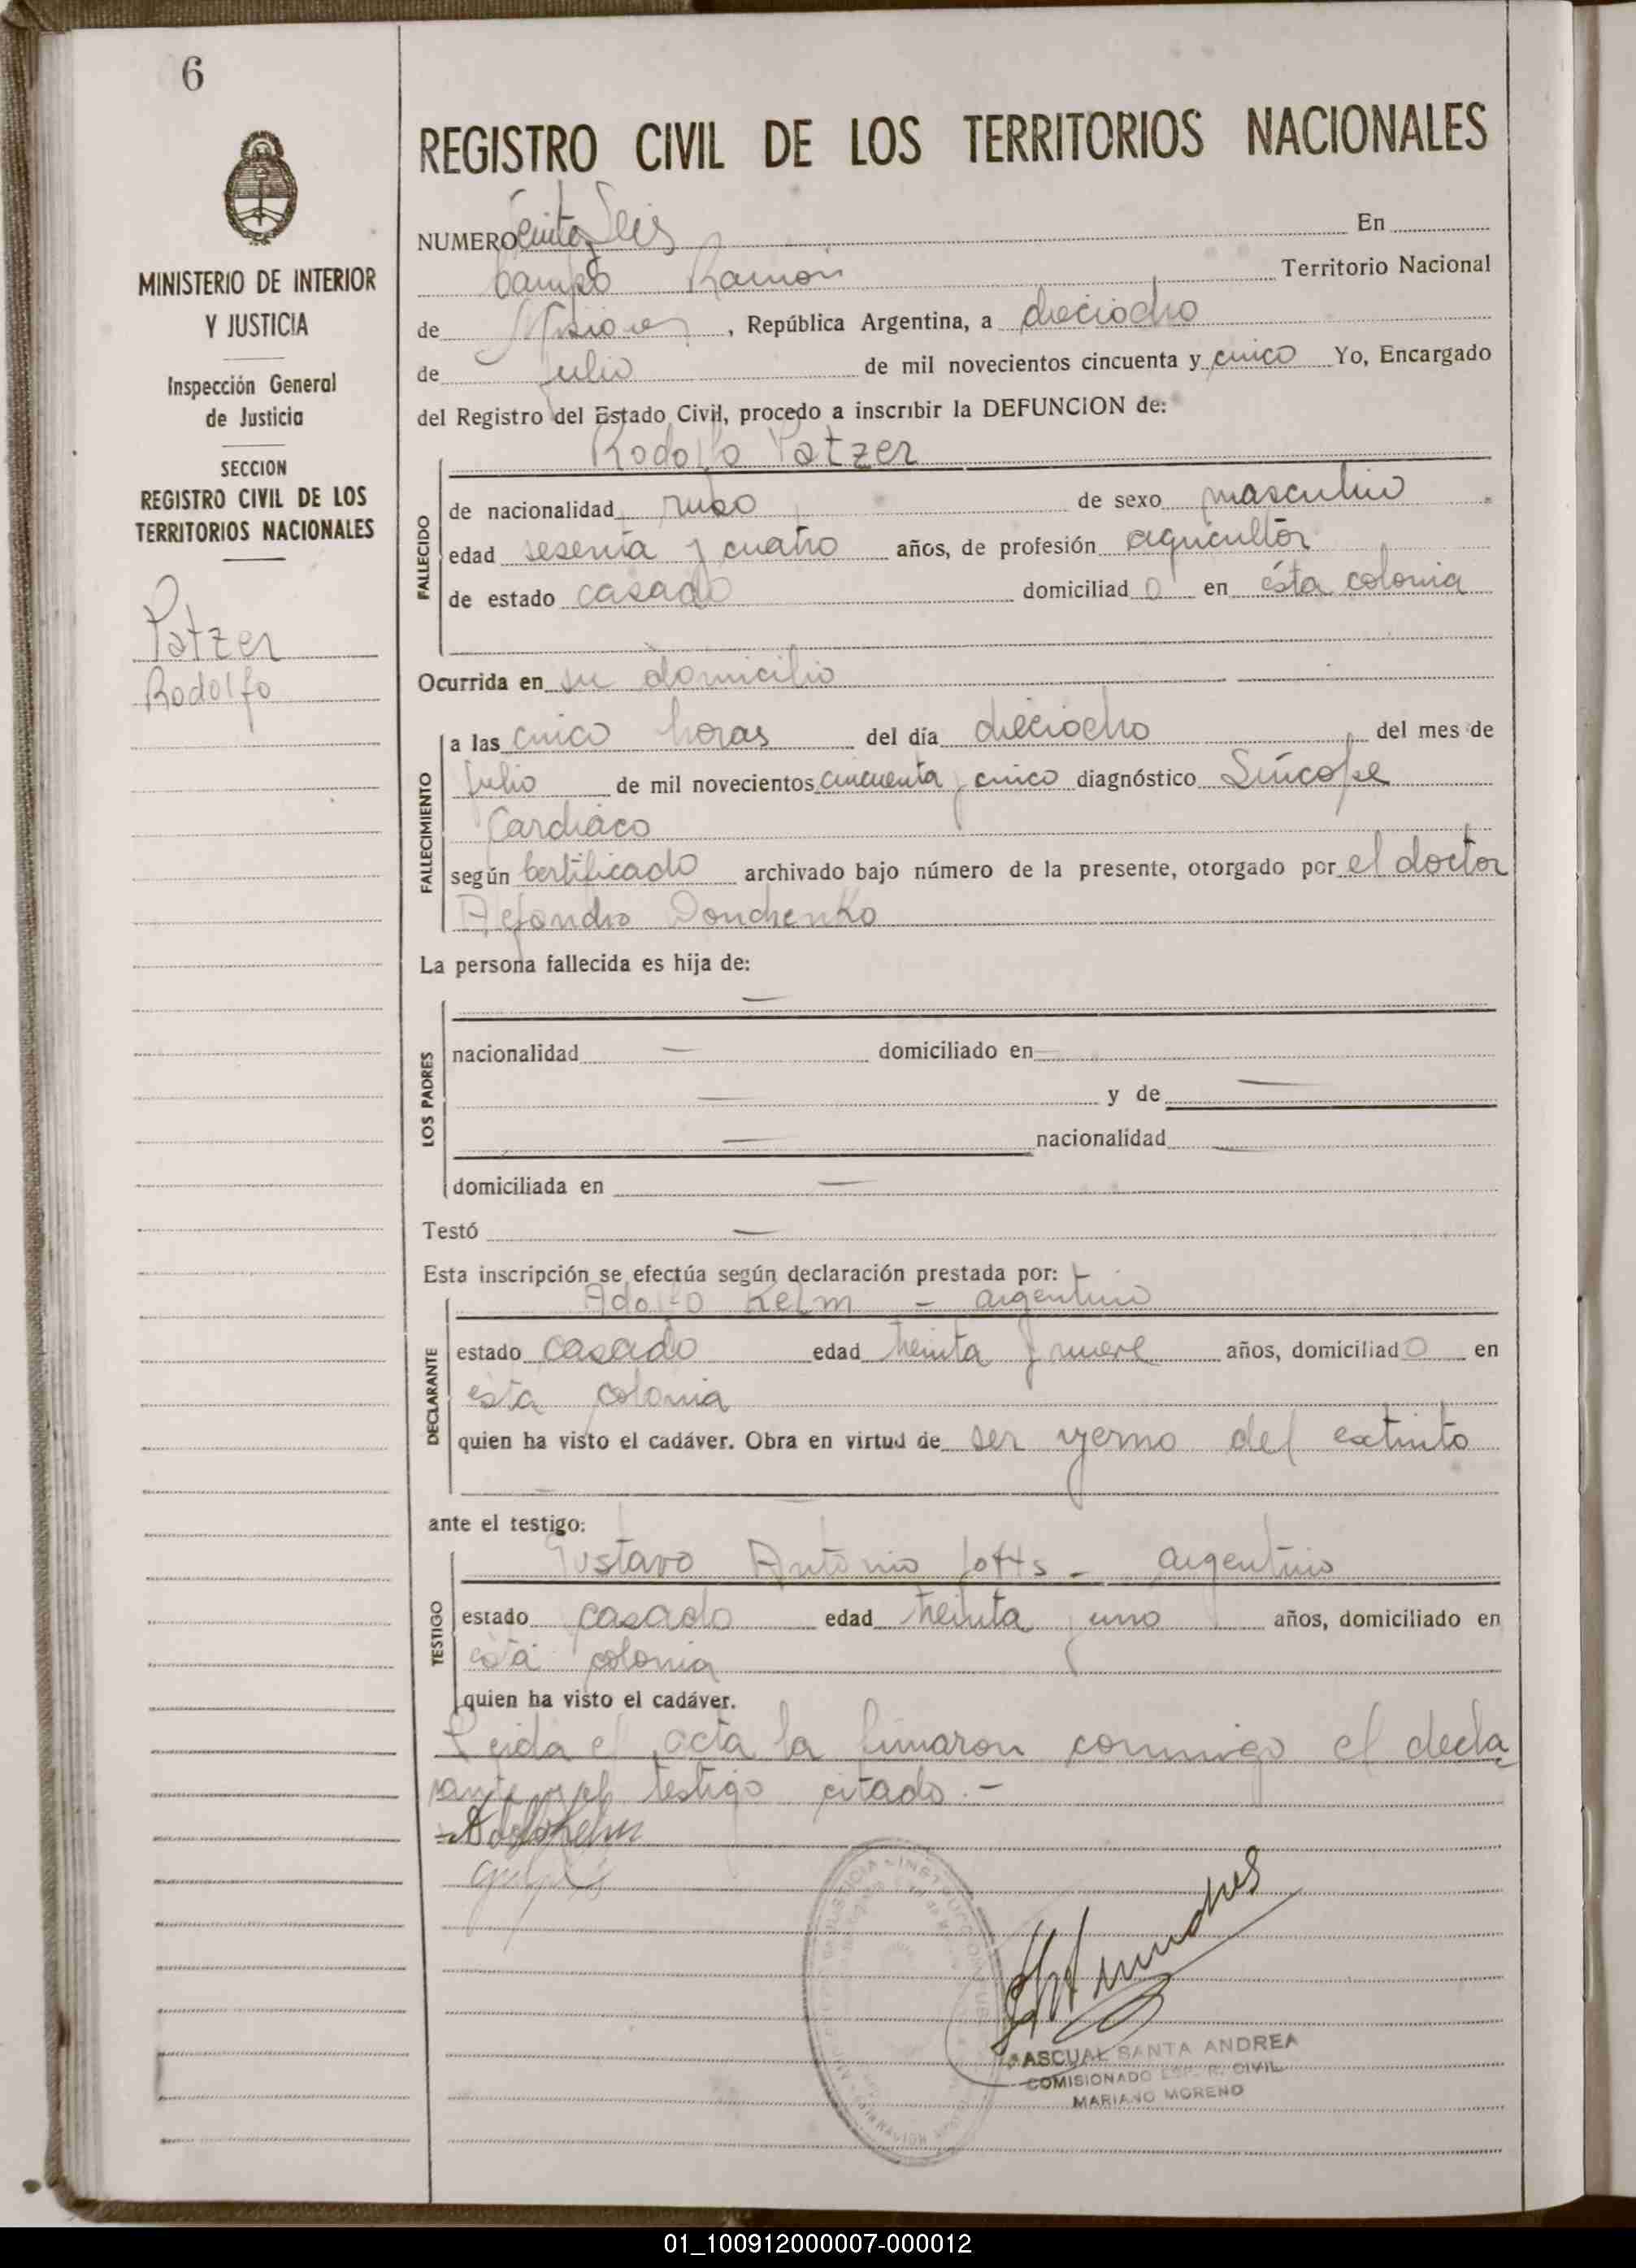 6
MINISTERIO DE INTERIOR
Y JUSTICIA
Inspección General
de Justicia
SECCION
REGISTRO CIVIL DE LOS
TERRITORIOS NACIONALES
Patzer
Rodolfo
REGISTRO CIVIL DE LOS TERRITORIOS NACIONALES
NUMERO Seis En
Campo Ramón Territorio Nacional
de Misiones, República Argentina, a dieciocho
de julio de mil novecientos cincuenta y cinco Yo, Encargado
del Registro del Estado Civil, procedo a inscribir la DEFUNCION de:
Rodolfo Patzer
FALLECIDO
de nacionalidad ruso de sexo masculino
edad sesenta y cuatro años, de profesión agricultor
de estado casado domiciliad o en ésta colonia
Ocurrida en su domicilio
FALLECIMIENTO
a las cinco horas del día dieciocho del mes de
Julio de mil novecientos cincuenta y cinco diagnóstico Síncope
Cardíaco
según certificado archivado bajo número de la presente, otorgado por el doctor
Donchenko
La persona fallecida es hija de:
—
LOS PADRES
nacionalidad — domiciliado en —
— y de —
— nacionalidad —
domiciliada en —
Testó —
Esta inscripción se efectúa según declaración prestada por:
Adolfo Kelm - argentino
DECLARANTE
estado casado edad treinta y nueve años, domiciliad o en
esta colonia
quien ha visto el cadáver. Obra en virtud de ser yerno del extinto
ante el testigo:
Gustavo Antonio - argentino
TESTIGO
estado casado edad treinta y uno años, domiciliado en
esta colonia
quien ha visto el cadáver.
Leida el acta la firmaron conmigo el decla
rante y el testigo citado.-
PASCUAL SANTA ANDREA
COMISIONADO CIVIL
MARIANO MORENO
01_100912000007-000012